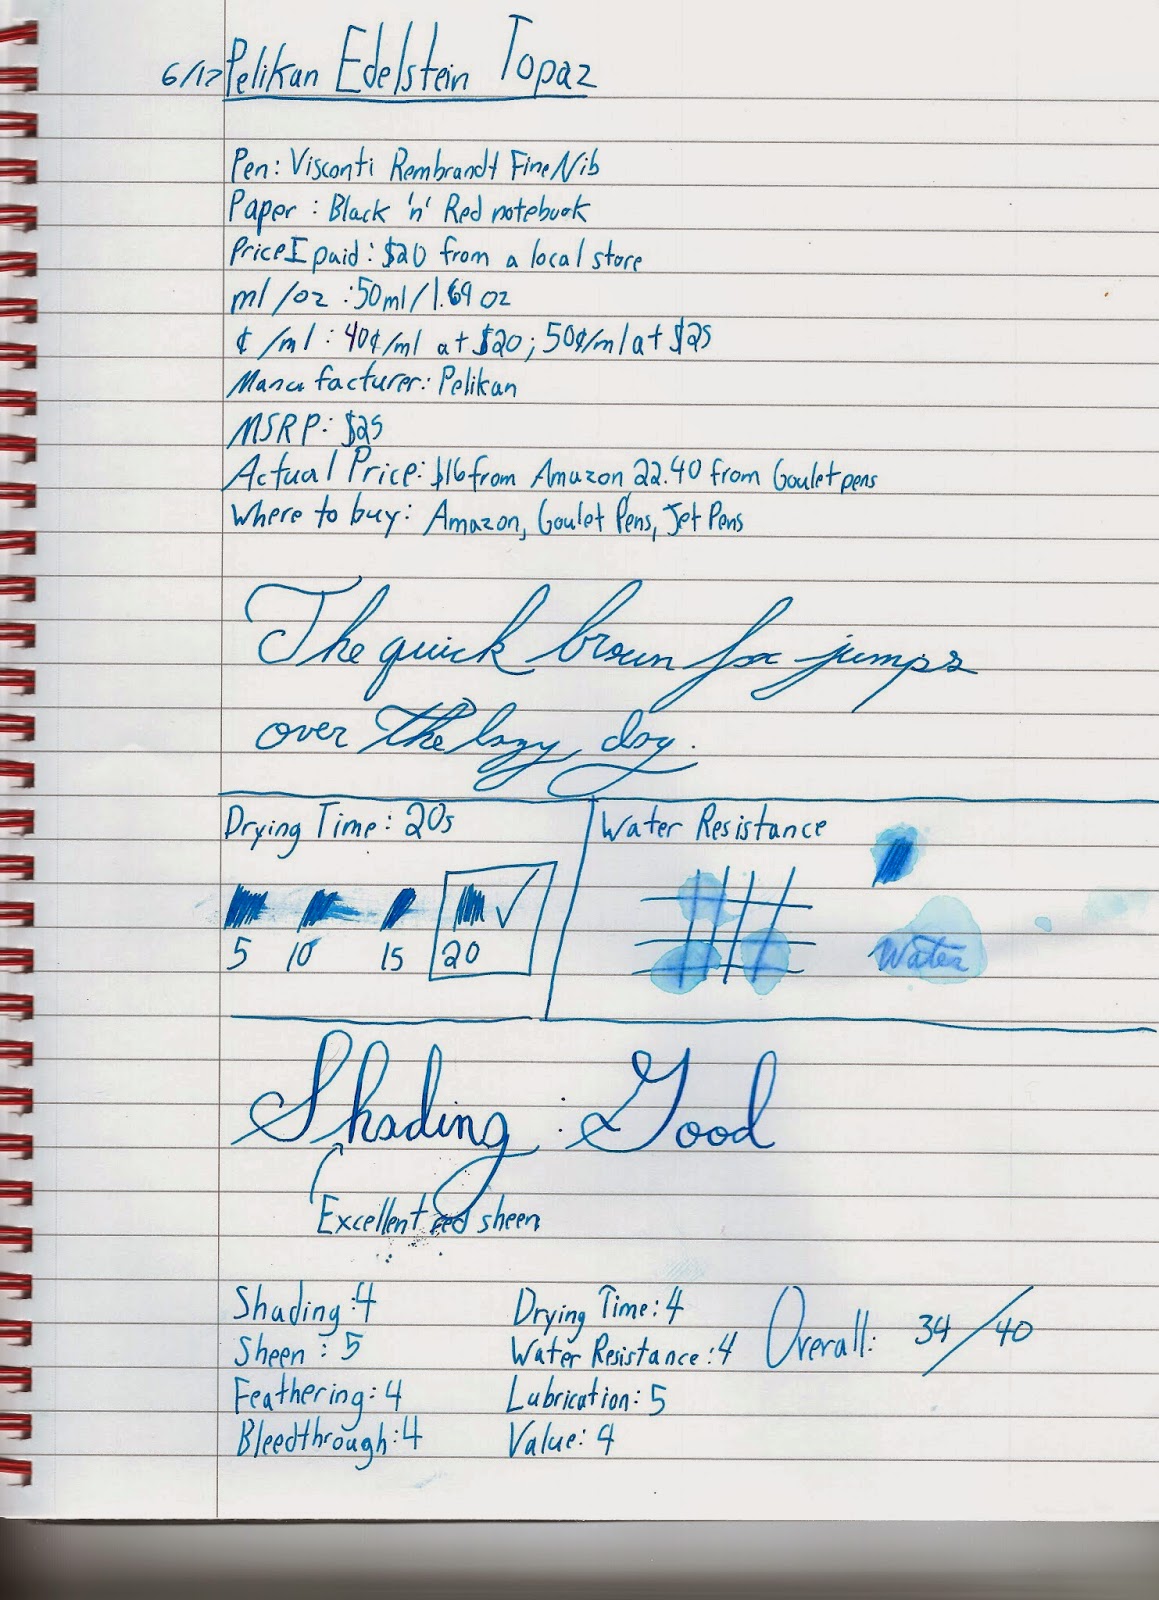 6/12 Pelikan Edelstein Topaz
Pen: Visconti Rembrandt Fine Nib
Paper: Black 'n' Red notebook
Price I paid: $20 from a local store
ml/oz: 50ml/1.69 oz
¢/ml: 40¢/ml at $20; 50¢/ml at $25
Manufacturer: Pelikan
MSRP: $25
Actual Price: $16 from Amazon 22.40 from Goulet pens
Where to buy: Amazon, Goulet Pens, Jet Pens
The quick brown fox jumps
over the lazy dog.
Drying Time: 20s
5 10 15 20
Water Resistance
Water
Shading: Good
Excellent red sheen
Shading: 4
Sheen: 5
Feathering: 4
Bleedthrough: 4
Drying Time: 4
Water Resistance: 4
Lubrication: 5
Value: 4
Overall: 34/40